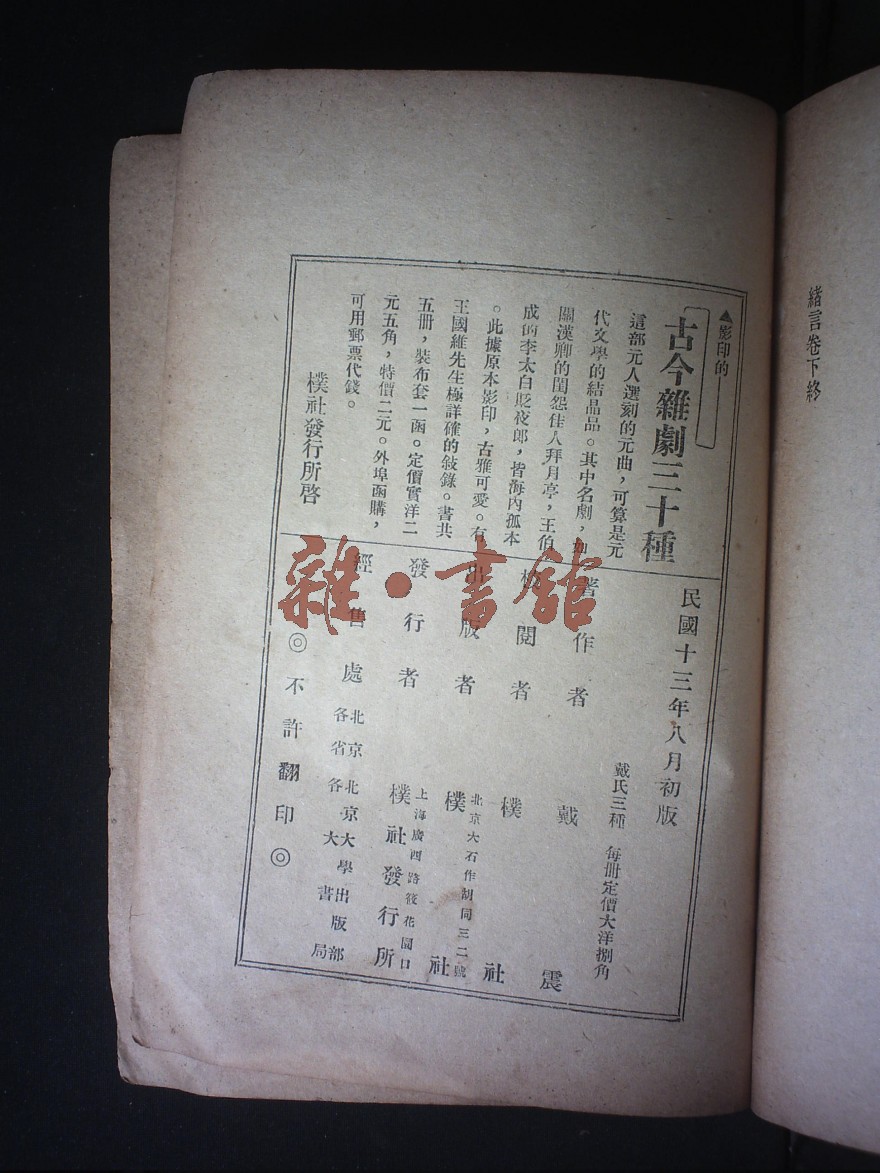 緒言卷下終
▲影印的
古今雜劇三十種
這部元人選刻的元曲，可算是元
代文學的結晶品。其中名劇，如
關漢卿的閨怨佳人拜月亭，王伯
成的李太白貶夜郎，皆海內孤本
。此據原本影印，古雅可愛。有
王國維先生極詳確的敍錄。書共
五册，裝布套一函。定價實洋二
元五角，特價二元。外埠函購，
可用郵票代錢。
樸社發行所啓
民國十三年八月初版
戴氏三種 每册定價大洋捌角
著作者 戴震
校閱者 樸社
北京大石作胡同三二號
出版者 樸社
上海廣西路筱花園口
發行者 樸社發行所
經售處 北京北京大學出版部
各省各大書局
◎不許翻印◎
雜·書館